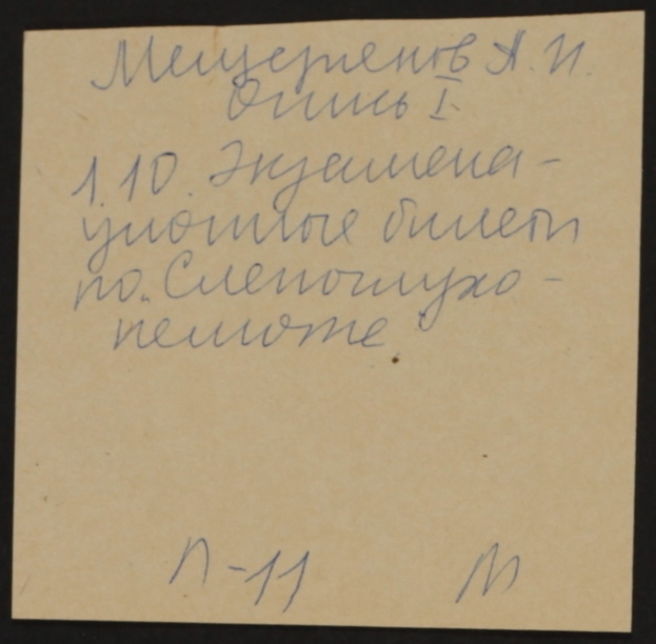 Мещеряков А.И.
Опись I.
1.10. Экзамена-
ционные билеты
по „Слепоглухо-
немоте“.
П-11 М